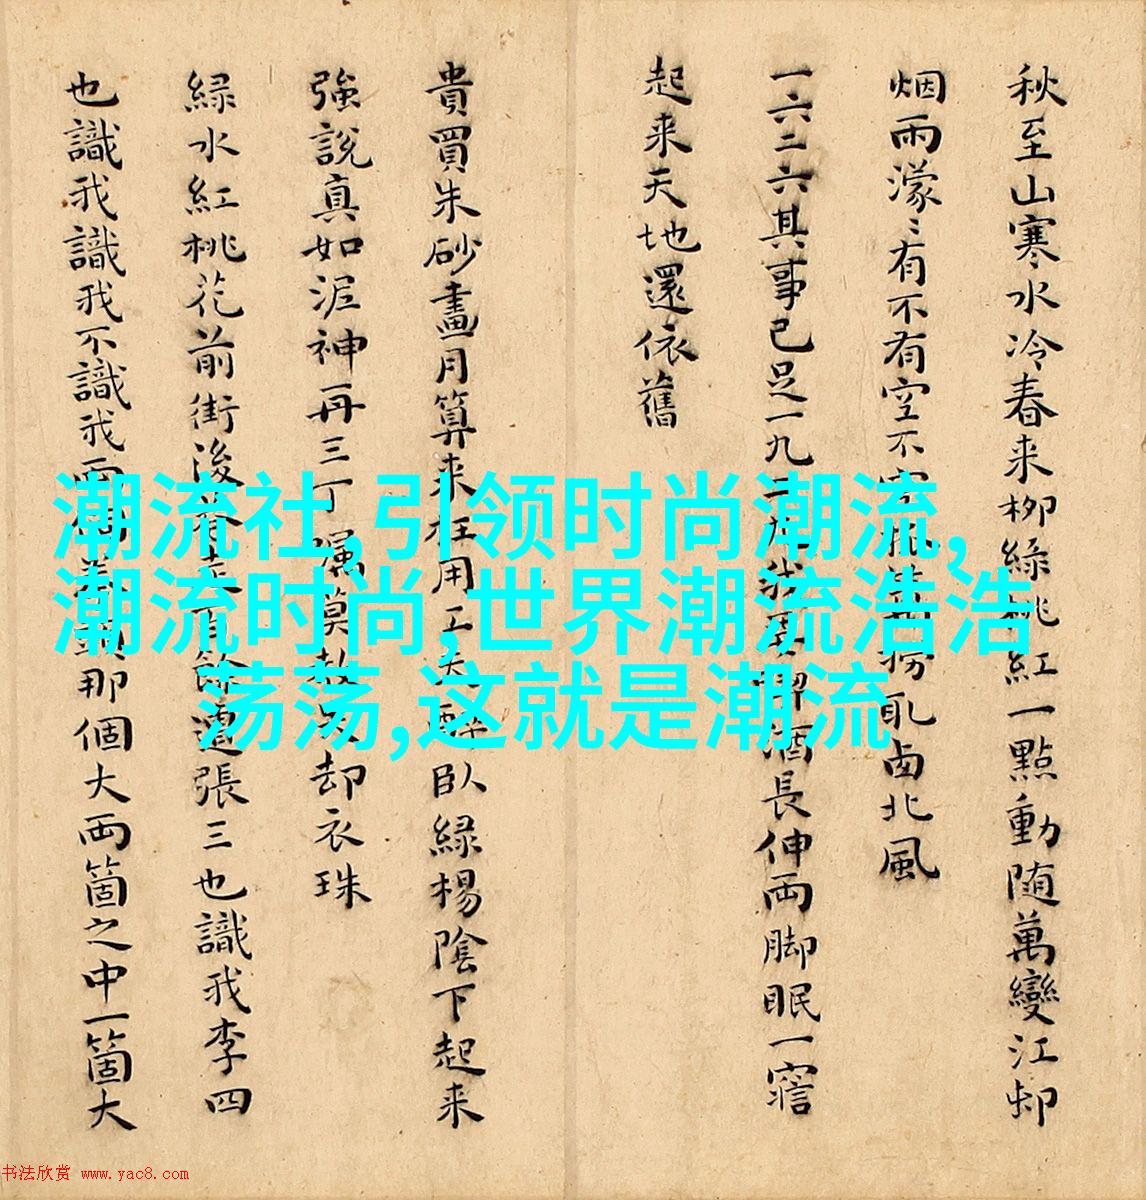 秋至山寒水冷春来柳綠桃紅一點動随萬變江邨
烟雨濛〻有不有空不空
北風
一六二六其事已足一九二九我要
酒長伸両脚眠一寤
起来天地還依舊
貴買朱砂畫月算来枉用工夫醉臥緑楊陰下起来
強説真如泥神再三丁嘱莫教
却衣珠
緑水紅桃花前街後巷走百餘遭張三也識我李四
也識我識我不識我両
那個大両箇之中一箇大
潮流社,引领时尚潮流,
潮流时尚,世界潮流浩浩
荡荡,这就是潮流
书法欣赏 www.yac8.com